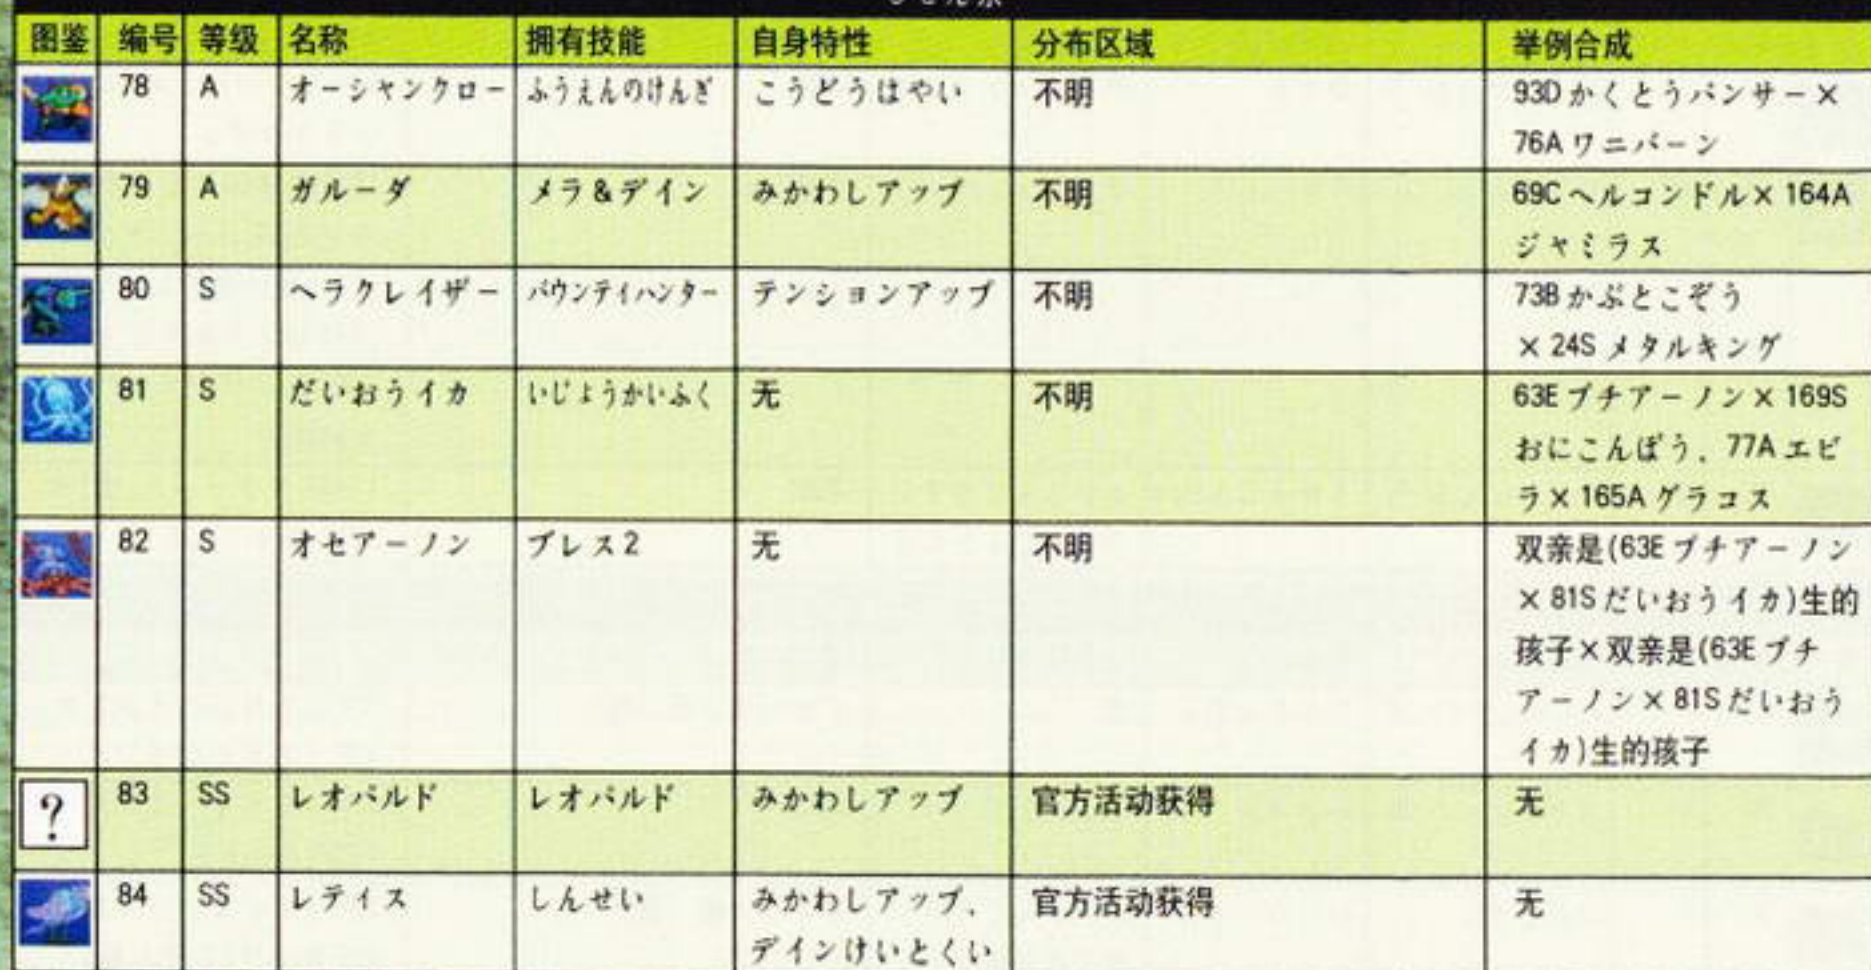 图鉴 编号 等级 名称 拥有技能 自身特性 分布区域 举例合成
78 A オーシャンクロー ふうえんのけんぎ こうどうはやい 不明 93Dかくとうパンサー×
76Aワニバーン
79 A ガルーダ メラ&デイン みかわしアップ 不明 69Cヘルコンドル×164A
ジャミラス
80 S ヘラクレイザー バウンティハンター テンションアップ 不明 73Bかぶとこぞう
×24Sメタルキング
81 S だいおうイカ いじょうかいふく 无 不明 63Eプチアーノン×169S
おにこんぼう、77Aエビ
ラ×165Aグラコス
82 S オセアーノン ブレス2 无 不明 双亲是(63Eプチアーノン
×81Sだいおうイカ)生的
孩子×双亲是(63Eプチ
アーノン×81Sだいおう
イカ)生的孩子
? 83 SS レオパルド レオパルド みかわしアップ 官方活动获得 无
84 SS レティス しんせい みかわしアップ、 官方活动获得 无
デインけいとくい